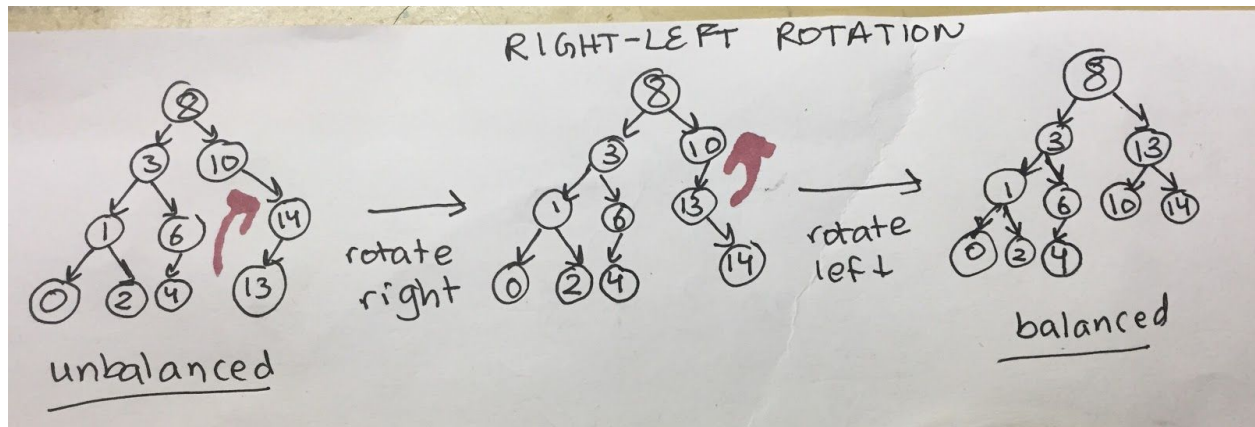 RIGHT-LEFT ROTATION
8
3 10
1 6 14
0 2 4 13
unbalanced
rotate
right
8
3 10
1 6 13
0 2 4 14
rotate
left
8
3 13
1 6 10 14
0 2 4
balanced